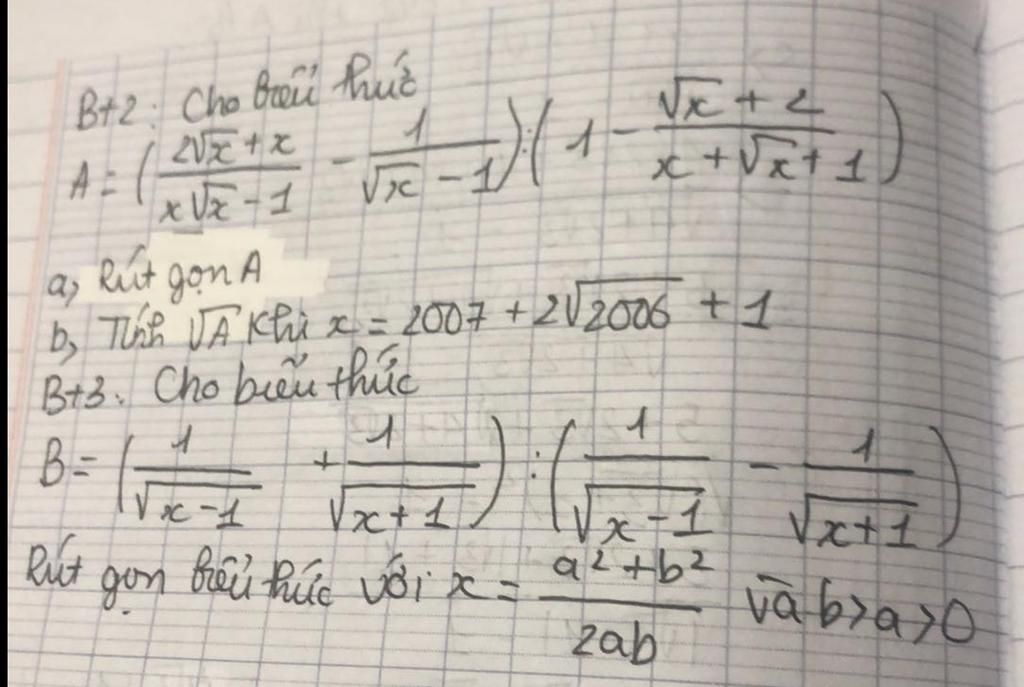 Bt2: Cho biểu thức
A = (\frac{2\sqrt{x}+x}{x\sqrt{x}-1} - \frac{1}{\sqrt{x}-1}) : (1 - \frac{\sqrt{x}+2}{x+\sqrt{x}+1})
a, Rút gọn A
b, Tính \sqrt{A} khi x = 2007 + 2\sqrt{2006} + 1
Bt3. Cho biểu thức
B = (\frac{1}{\sqrt{x-1}} + \frac{1}{\sqrt{x+1}}) : (\frac{1}{\sqrt{x-1}} - \frac{1}{\sqrt{x+1}})
Rút gọn biểu thức với x = \frac{a^2+b^2}{2ab} và b>a>0